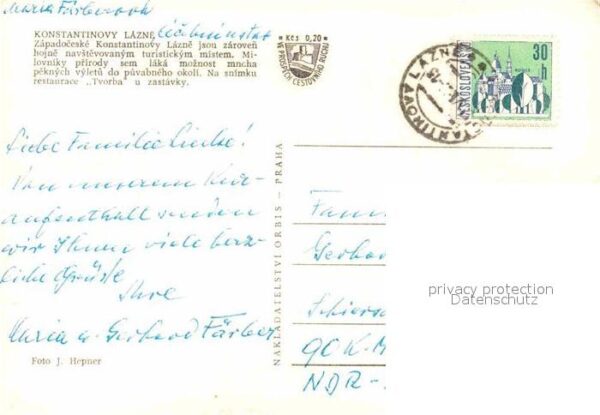 Maria Färberová
léčební ústav
KONSTANTINOVY LÁZNĚ
Západočeské Konstantinovy Lázně jsou zároveň
hojně navštěvovaným turistickým místem. Mi-
lovníky přírody sem láká možnost mnoha
pěkných výletů do půvabného okolí. Na snímku
restaurace „Tvorba" u zastávky.
Kčs 0,20
VE PROSPĚCH CESTOVNÍHO RUCHU
30
h
ČESKOSLOVENSKO
LÁZNĚ
Liebe Familie Lincke!
Von unserem Kur-
aufenthalt senden
wir Ihnen viele herz-
liche Grüße
Ihre
Maria u. Gerhard Färber
Foto J. Hepner
NAKLADATELSTVÍ ORBIS — PRAHA
Fam
Gerhar
90 K-M
NDR-
privacy protection
Datenschutz